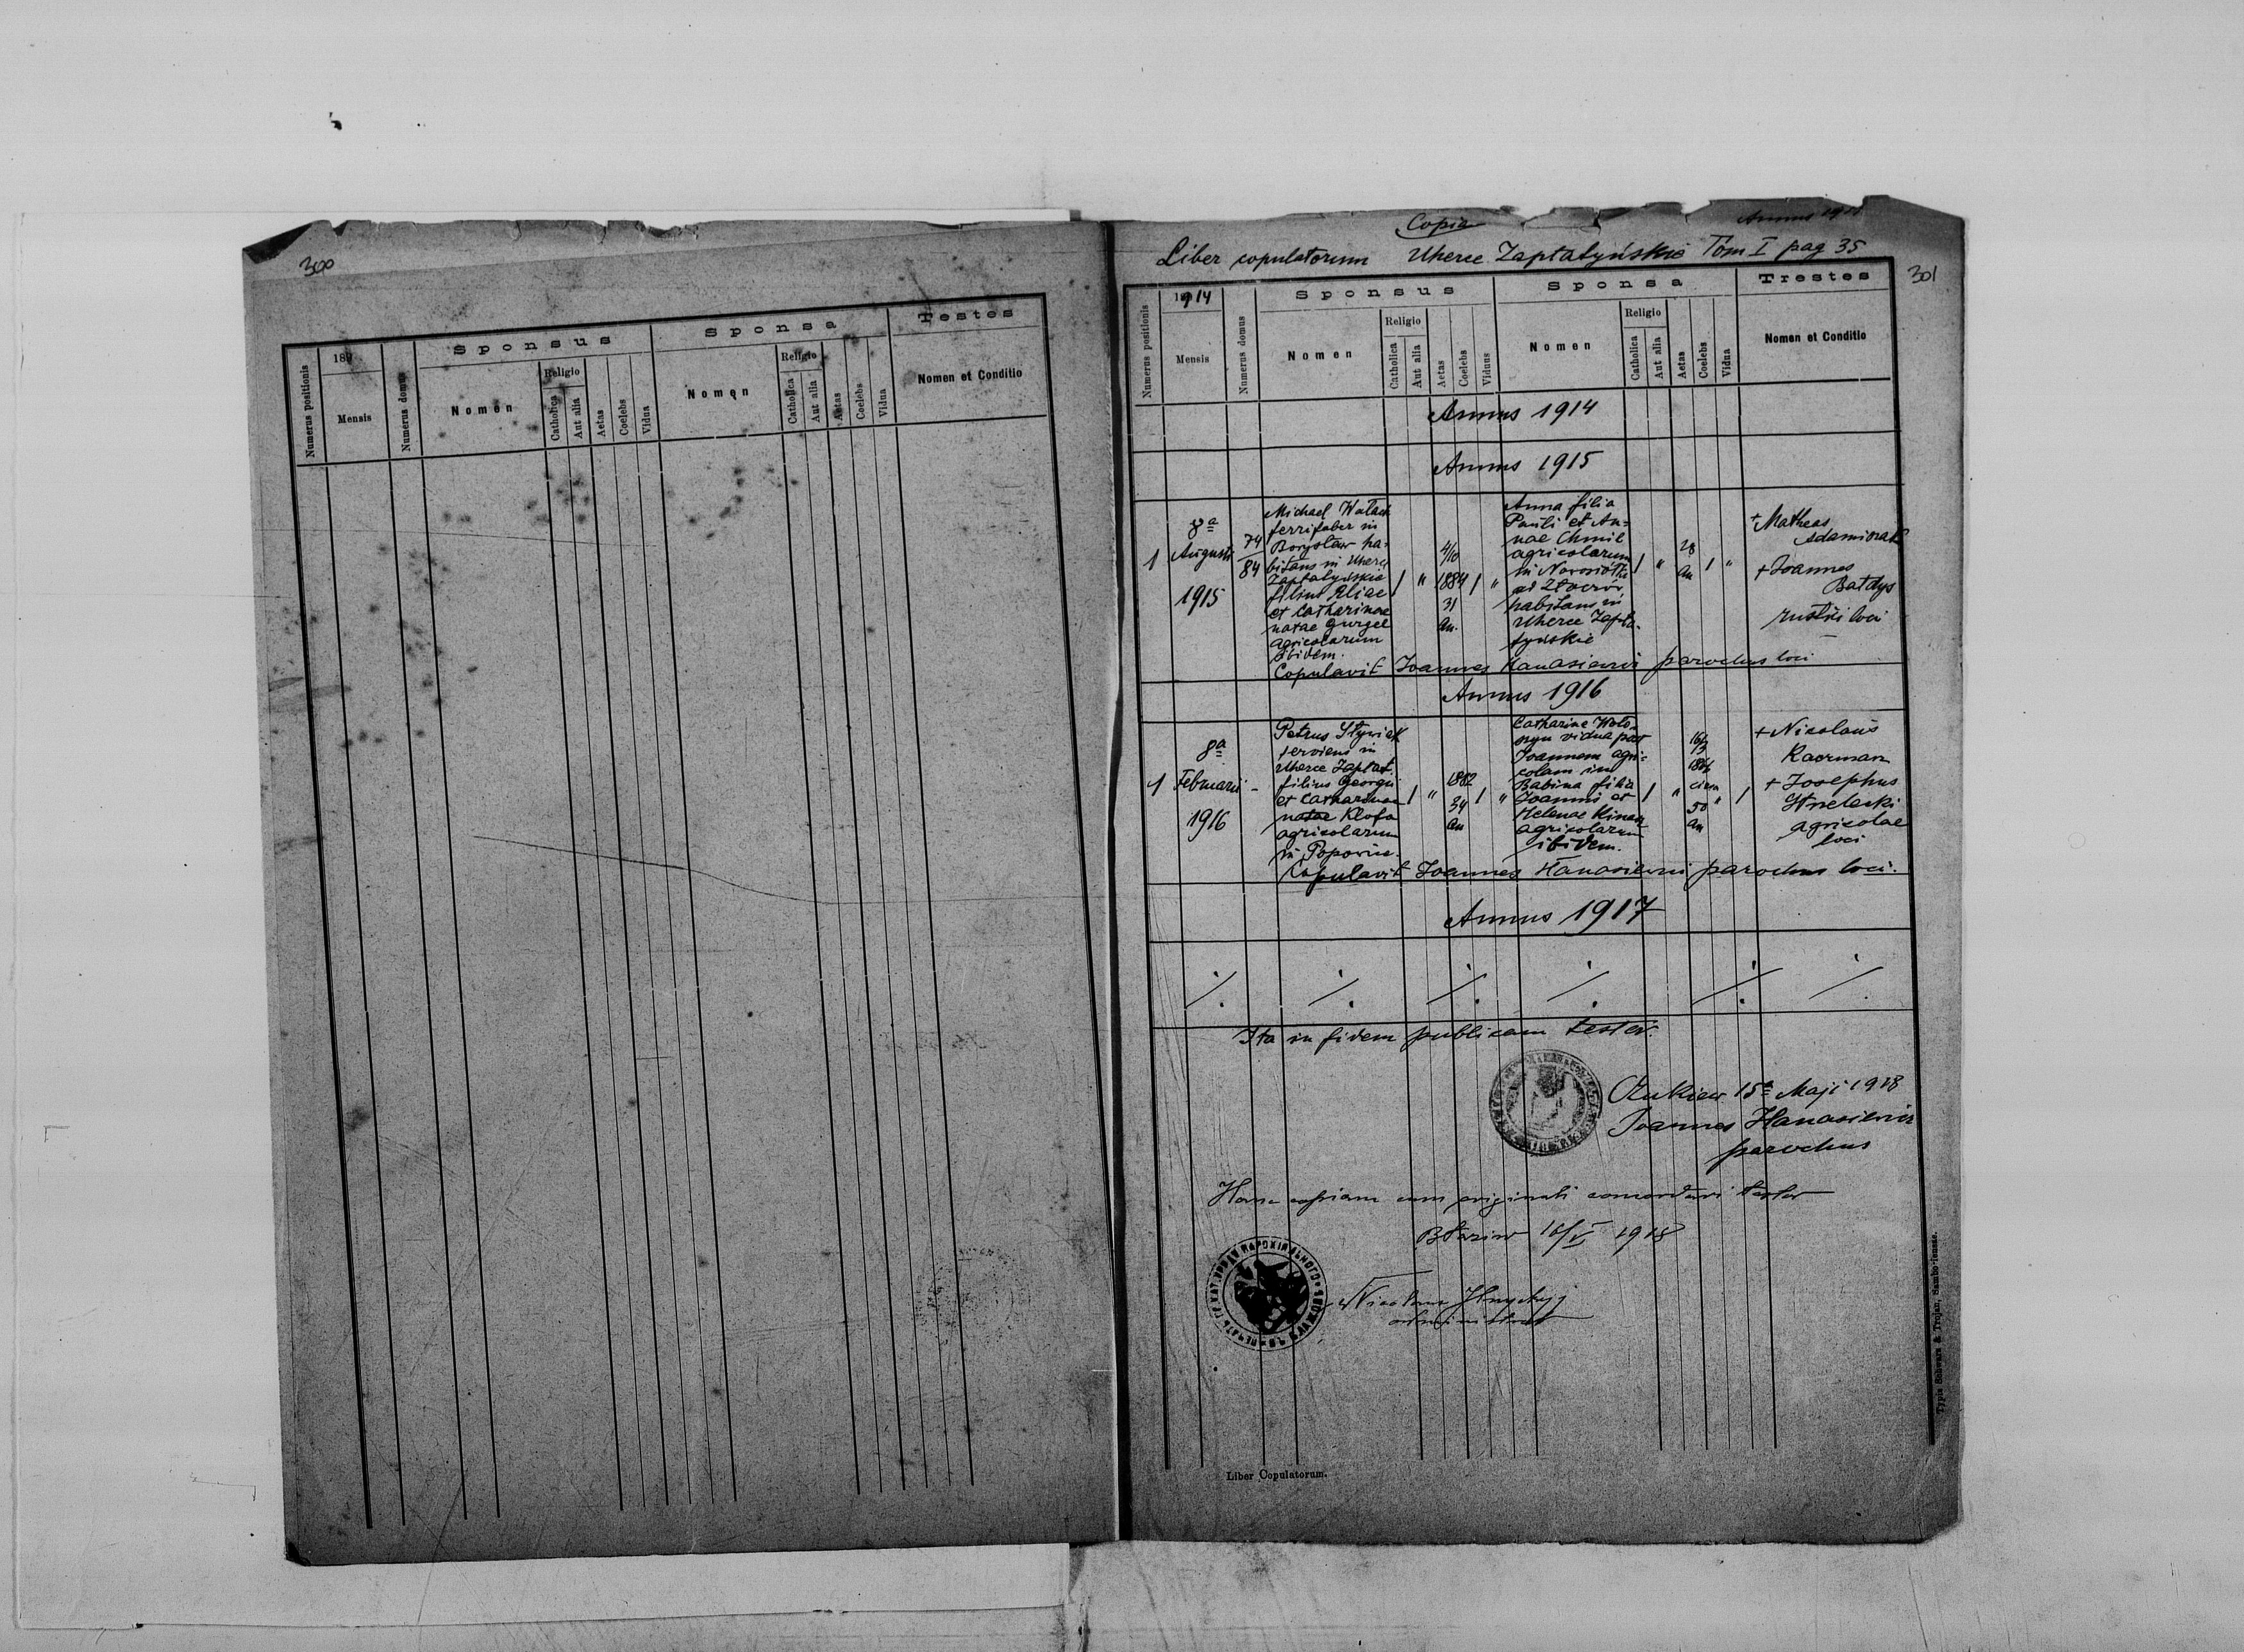 300
189
Mensis
Numerus positionis
Numerus domus
Sponsus
Nomen
Religio
Catholica
Aut alia
Aetas
Coelebs
Vidua
Sponsa
Nomen
Religio
Catholica
Aut alia
Aetas
Coelebs
Vidua
Testes
Nomen et Conditio
Copia
Annus
Liber copulatorum Uherce Zapłatyńskie Tom I pag 35
301
Numerus positionis
1914
Mensis
Numerus domus
Sponsus
Nomen
Religio
Catholica
Aut alia
Aetas
Coelebs
Viduus
Sponsa
Nomen
Religio
Catholica
Aut alia
Aetas
Coelebs
Vidua
Trestes
Nomen et Conditio
Annus 1914
Annus 1915
1
8a
Augusti
1915
74
84
Michael Wołach
ferrifaber in
Borysław ha-
bitans in Uherce
Zapłatyńskie
filius Eliae
et Catharinae
natae Gurgel
agricolarum
ibidem.
1 "
4/10
1884
31
an.
1 "
Anna filia
Pauli et An-
nae Chmil
agricolarum
in
ad
habitans in
Uherce Zapła-
tyńskie
1 "
28
an
1 "
+ Matheas
Adamiszak
+ Joannes
Bałdys
rustici loci
Copulavit Joannes Hanasiewicz parochus loci
Annus 1916
1
8a
Februarii
1916
-
Petrus
serviens in
Uherce Zapłat.
filius Georgii
et Catharinae
natae Klofa
agricolarum
in Popowice.
1 "
1882
34
an
1 "
Catharina Woło-
szyn vidua post
Joannem agri-
colam in
Babina filia
Joannis et
Helenae
agricolarum
ibidem.
1 "
circa
50
an
" 1
+ Nicolaus
Kaczman
+ Josephus
Strzelecki
agricolae
loci
Copulavit Joannes Hanasiewicz parochus loci.
Annus 1917
Ita in fidem publicam testor.
Czukiew 15a Maji 1918
Joannes Hanasiewicz
parochus
Hanc copiam cum originali concordari testor
16/V 1918
Nicolaus
administrator
Liber Copulatorum.
Typis Schwarz & Trojan, Sambo-iensis.